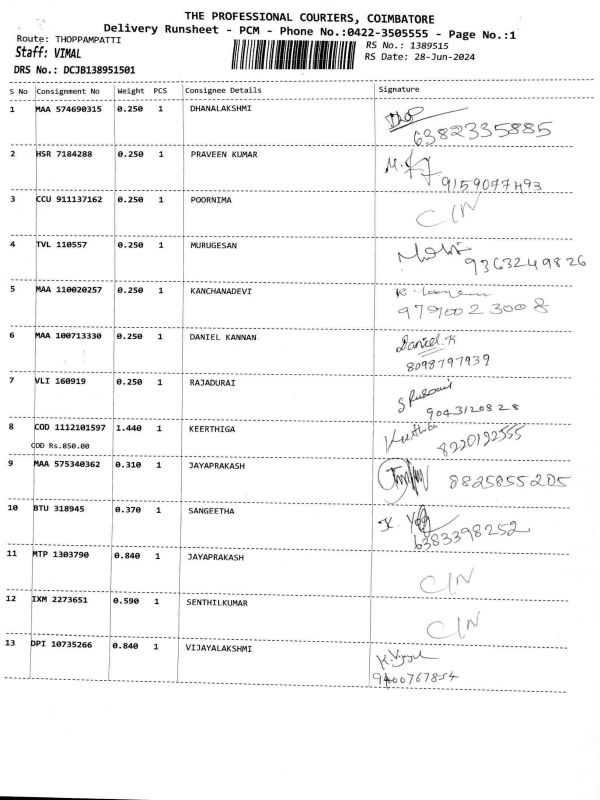 THE PROFESSIONAL COURIERS, COIMBATORE
Delivery Runsheet - PCM - Phone No.:0422-3505555 - Page No.:1
Route: THOPPAMPATTI
RS No.: 1389515
Staff: VIMAL
RS Date: 28-Jun-2024
DRS No.: DCJB138951501
S No Consignment No Weight PCS Consignee Details Signature
1 MAA 574690315 0.250 1 DHANALAKSHMI
6382335885
2 HSR 7184288 0.250 1 PRAVEEN KUMAR
9159077493
3 CCU 911137162 0.250 1 POORNIMA CIN
4 TVL 110557 0.250 1 MURUGESAN
9363249826
5 MAA 110020257 0.250 1 KANCHANADEVI
9791002 3008
6 MAA 100713330 0.250 1 DANIEL KANNAN Daniel.K
8098797939
7 VLI 160919 0.250 1 RAJADURAI
9043120828
8 COD 1112101597 1.440 1 KEERTHIGA
8220192555
COD Rs.850.00
9 MAA 575340362 0.310 1 JAYAPRAKASH 8825855205
10 BTU 318945 0.370 1 SANGEETHA
6383398252
11 MTP 1303790 0.840 1 JAYAPRAKASH CIN
12 IXM 2273651 0.590 1 SENTHILKUMAR CIN
13 DPI 10735266 0.840 1 VIJAYALAKSHMI
9400767854